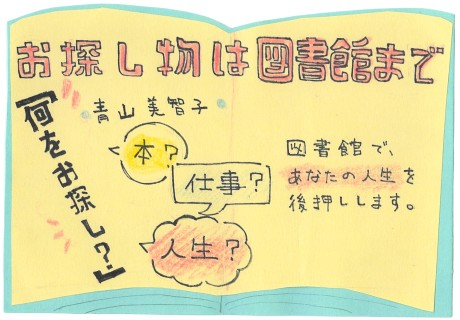 お探し物は図書館まで
青山美智子
『何をお探し?』
本?
仕事?
人生?
図書館で、
あなたの人生を
後押しします。